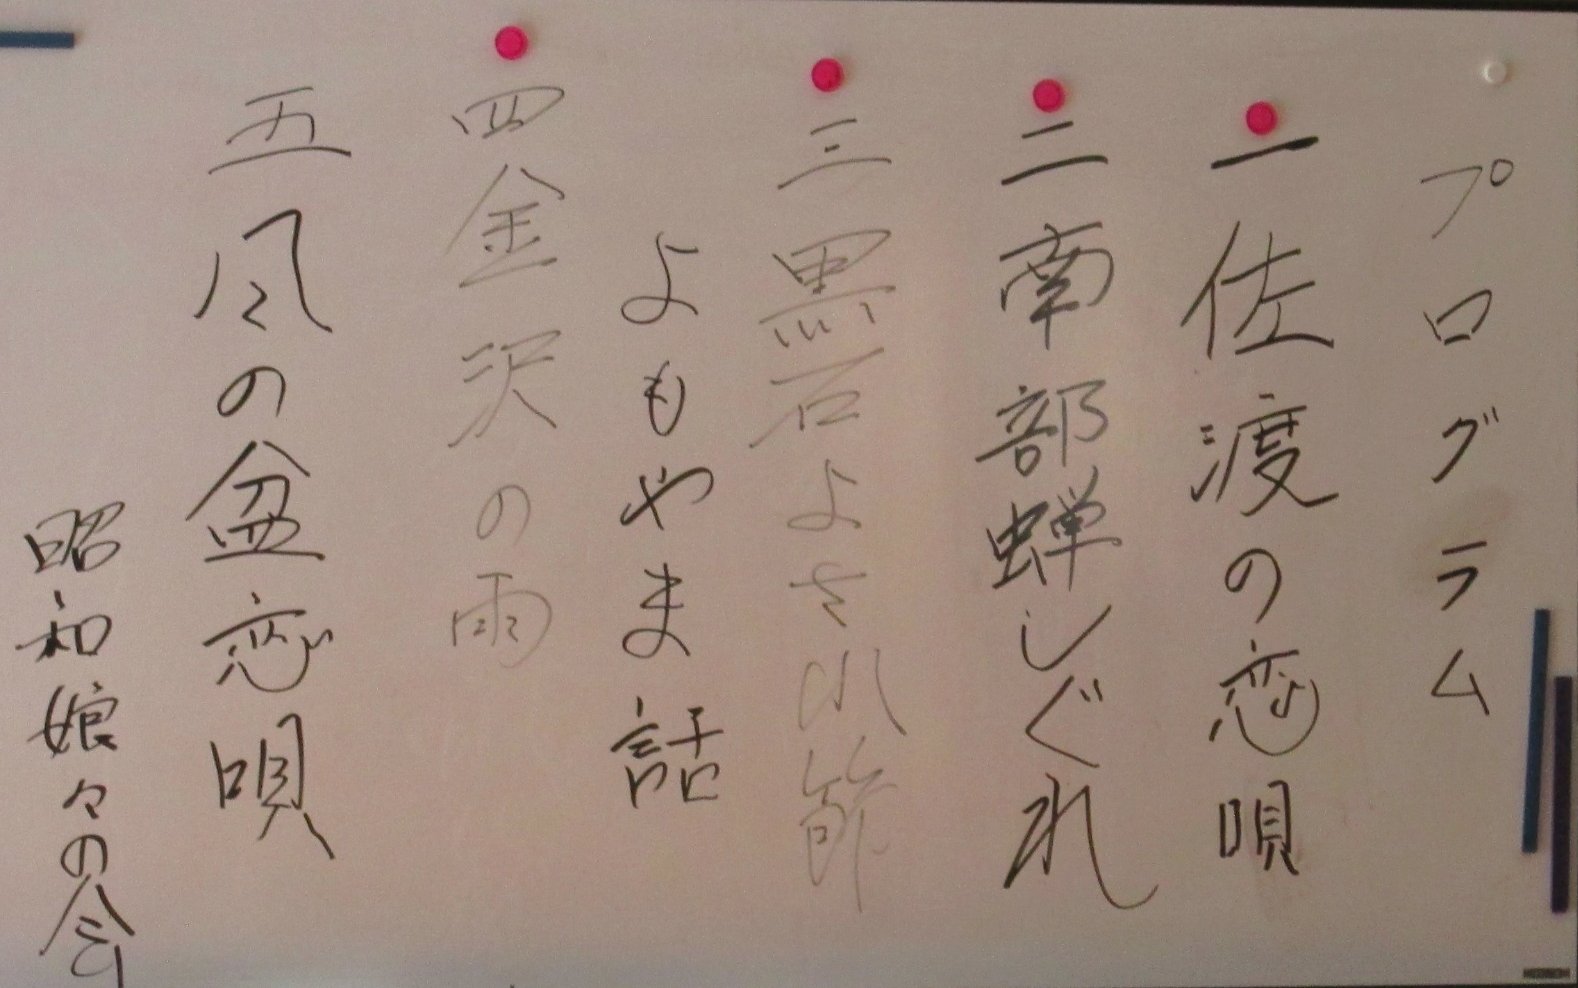 プログラム
一 佐渡の恋唄
二 南部蝉しぐれ
三 黒石よされ節
よもやま話
四 金沢の雨
五 風の盆恋唄
昭和娘々の会